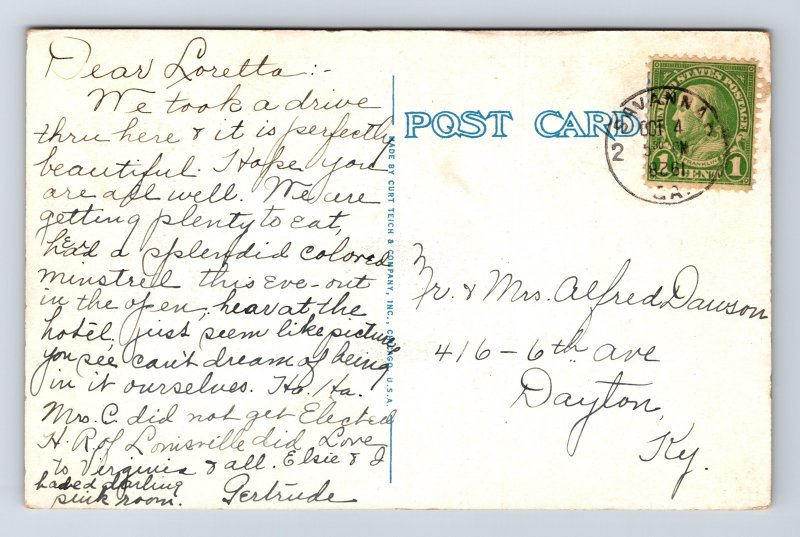 Dear Loretta :-
We took a drive
thru here & it is perfectly
beautiful. Hope you
are all well. We are
getting plenty to eat,
had a splendid colored
minstrel this eve- out
in the open, hear at the
hotel, just seem like picture
you see can't dream of being
in it ourselves. Ha. Ha.
Mrs. C. did not get Elected
H. R. of Louisville did. Love
to Virginia & all. Elsie & I
haved darling
pink room. Gertrude
MADE BY CURT TEICH & COMPANY, INC., CHICAGO, U.S.A.
POST CARD
UNITED STATES POSTAGE
FRANKLIN
1 CENT 1
SAVANNAH
OCT 4
1928
GA.
2
Mr. & Mrs. Alfred Dawson
416 - 6th ave
Dayton,
Ky.